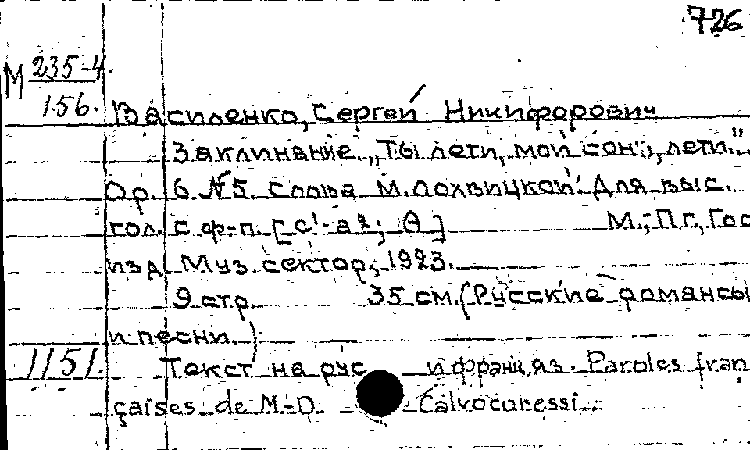 726
М 235-4
156.
Василенко, Сергей Никифорович
Заклинание. „Ты лети, мой сон, лети..."
Ор. 6 №5. Слова М. Лохвицкой. Для выс.
гол. с ф-п. [c¹-as²; ]. М.; Пг., Гос
изд. Муз. сектор, 1923.
9 стр. 35 см. (Русские романсы
и песни.)
1151. Текст на рус и франц. яз. Paroles fran
çaises de M.-D. Calvocoressi.